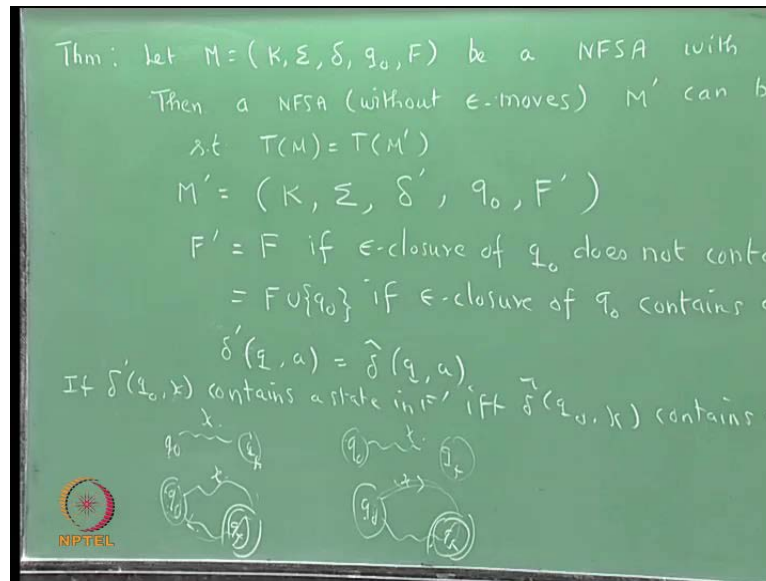 Thm: Let M = (K, Σ, δ, q₀, F) be a NFSA with
Then a NFSA (without ϵ-moves) M' can b
s.t T(M) = T(M')
M' = (K, Σ, δ', q₀, F')
F' = F if ϵ-closure of q₀ does not conta
= F∪{q₀} if ϵ-closure of q₀ contains a
δ'(q, a) = δ̂(q, a)
If δ'(q₀, x) contains a state in F' iff δ̂(q₀, x) contains
q₀ x
q₀ x
q₀ x
q₀ x
NPTEL